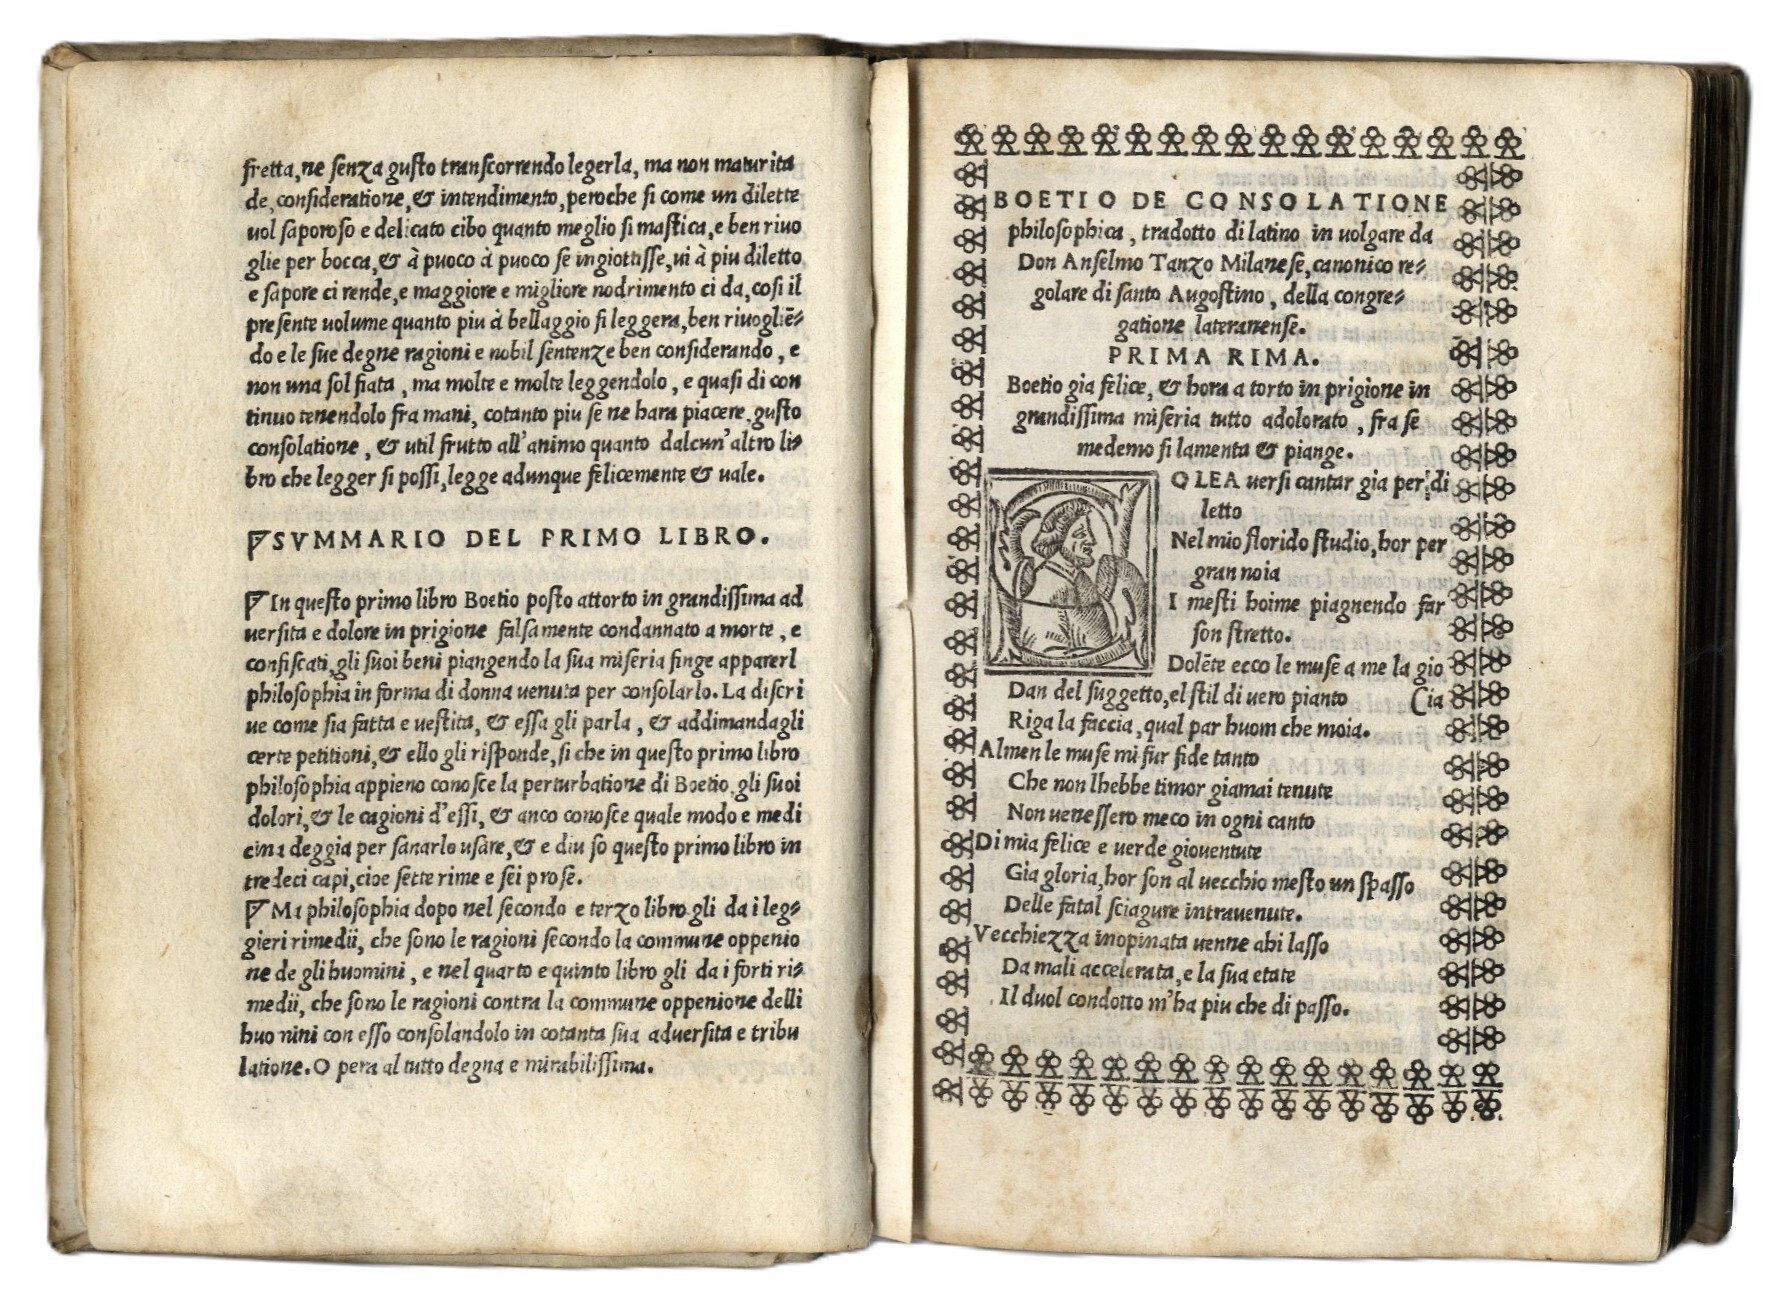 fretta, ne senza gusto transcorrendo legerla, ma non maturita
de, consideratione, & intendimento, peroche si come un dilette
uol saporoso e delicato cibo quanto meglio si mastica, e ben riuo
glie per bocca, & à puoco à puoco se ingiottisse, ui à piu diletto
e sapore ci rende, e maggiore e migliore nodrimento ci da, cosi il
presente uolume quanto piu à bellaggio si leggera, ben riuogliē-
do e le sue degne ragioni e nobil sentenze ben considerando, e
non una sol fiata, ma molte e molte leggendolo, e quasi di con
tinuo tenendolo fra mani, cotanto piu se ne hara piacere, gusto
consolatione, & util frutto all'animo quanto dalcun'altro li-
bro che legger si possi, legge adunque felicemente & uale.
SVMMARIO DEL PRIMO LIBRO.
In questo primo libro Boetio posto attorto in grandissima ad
uersita e dolore in prigione falsamente condannato a morte, e
confiscati, gli suoi beni piangendo la sua miseria finge apparerl
philosophia in forma di donna uenuta per consolarlo. La discri
ue come sia fatta e uestita, & essa gli parla, & addimandagli
certe petitioni, & ello gli risponde, si che in questo primo libro
philosophia appieno conosce la perturbatione di Boetio, gli suoi
dolori, & le cagioni d'essi, & anco conosce quale modo e medi
cina deggia per sanarlo usare, & e diuiso questo primo libro in
tredeci capi, cioe sette rime e sei prose.
Ma philosophia dopo nel secondo e terzo libro gli da i leg-
gieri rimedii, che sono le ragioni secondo la commune oppenio
ne de gli huomini, e nel quarto e quinto libro gli da i forti ri-
medii, che sono le ragioni contra la commune oppenione delli
huomini con esso consolandolo in cotanta sua adversita e tribu
latione. O pera al tutto degna e mirabilissima.
BOETIO DE CONSOLATIONE
philosophica, tradotto di latino in uolgare da
Don Anselmo Tanzo Milanese, canonico re-
golare di santo Augostino, della congre-
gatione lateranense.
PRIMA RIMA.
Boetio gia felice, & hora a torto in prigione in
grandissima miseria tutto adolorato, fra se
medemo si lamenta & piange.
OLEA uersi cantar gia per di
letto
Nel mio florido studio, hor per
gran noia
I mesti hoime piagnendo far
son stretto.
Dolēte ecco le muse a me la gio
Dan del suggetto, el stil di uero pianto (ia
Riga la faccia, qual par huom che moia.
Almen le muse mi fur fide tanto
Che non lhebbe timor giamai tenute
Non uenessero meco in ogni canto
Di mia felice e uerde giouentute
Gia gloria, hor son al uecchio mesto un spasso
Delle fatal sciagure intrauenute.
Vecchiezza inopinata uenne ahi lasso
Da mali accelerata, e la sua etate
Il duol condotto m'ha piu che di passo.